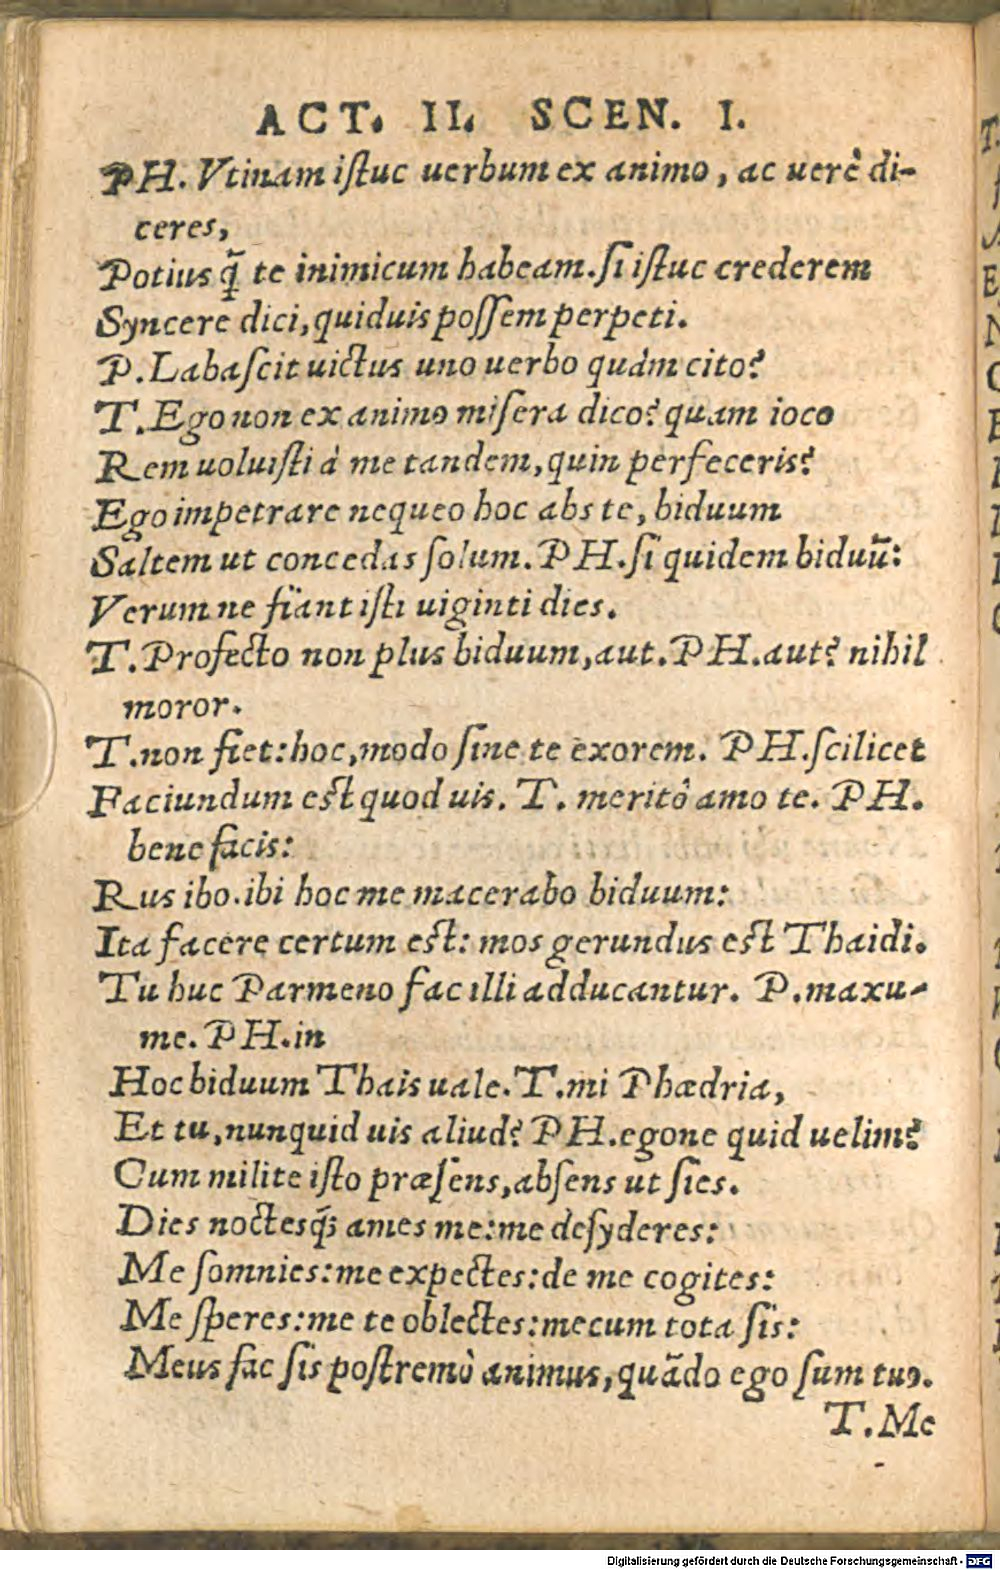 ACT. II. SCEN. I.
PH. Vtinam iſtuc uerbum ex animo, ac uerè di-
ceres,
Potius q̃ te inimicum habeam. ſi iſtuc crederem
Syncere dici, quiduis poſſem perpeti.
P. Labaſcit uictus uno uerbo quàm cito?
T. Ego non ex animo miſera dico? quam ioco
Rem uoluiſti à me tandem, quin perfeceris?
Ego impetrare nequeo hoc abs te, biduum
Saltem ut concedas ſolum. PH. ſi quidem biduũ:
Verum ne fiant iſti uiginti dies.
T. Profecto non plus biduum, aut. PH. aut? nihil
moror.
T. non fiet: hoc, modo ſine te exorem. PH. ſcilicet
Faciundum eſt quod uis. T. meritò amo te. PH.
bene facis:
Rus ibo. ibi hoc me macerabo biduum:
Ita facere certum eſt: mos gerundus eſt Thaidi.
Tu huc Parmeno fac illi adducantur. P. maxu-
me. PH. in
Hoc biduum Thais uale. T. mi Phædria,
Et tu, nunquid uis aliud? PH. egone quid uelim?
Cum milite iſto præſens, abſens ut ſies.
Dies noctesq́; ames me: me deſyderes:
Me ſomnies: me expectes: de me cogites:
Me ſperes: me te oblectes: mecum tota ſis:
Meus fac ſis poſtremò animus, quãdo ego ſum tuꝰ.
T. Me
Digitalisierung gefördert durch die Deutsche Forschungsgemeinschaft - DFG